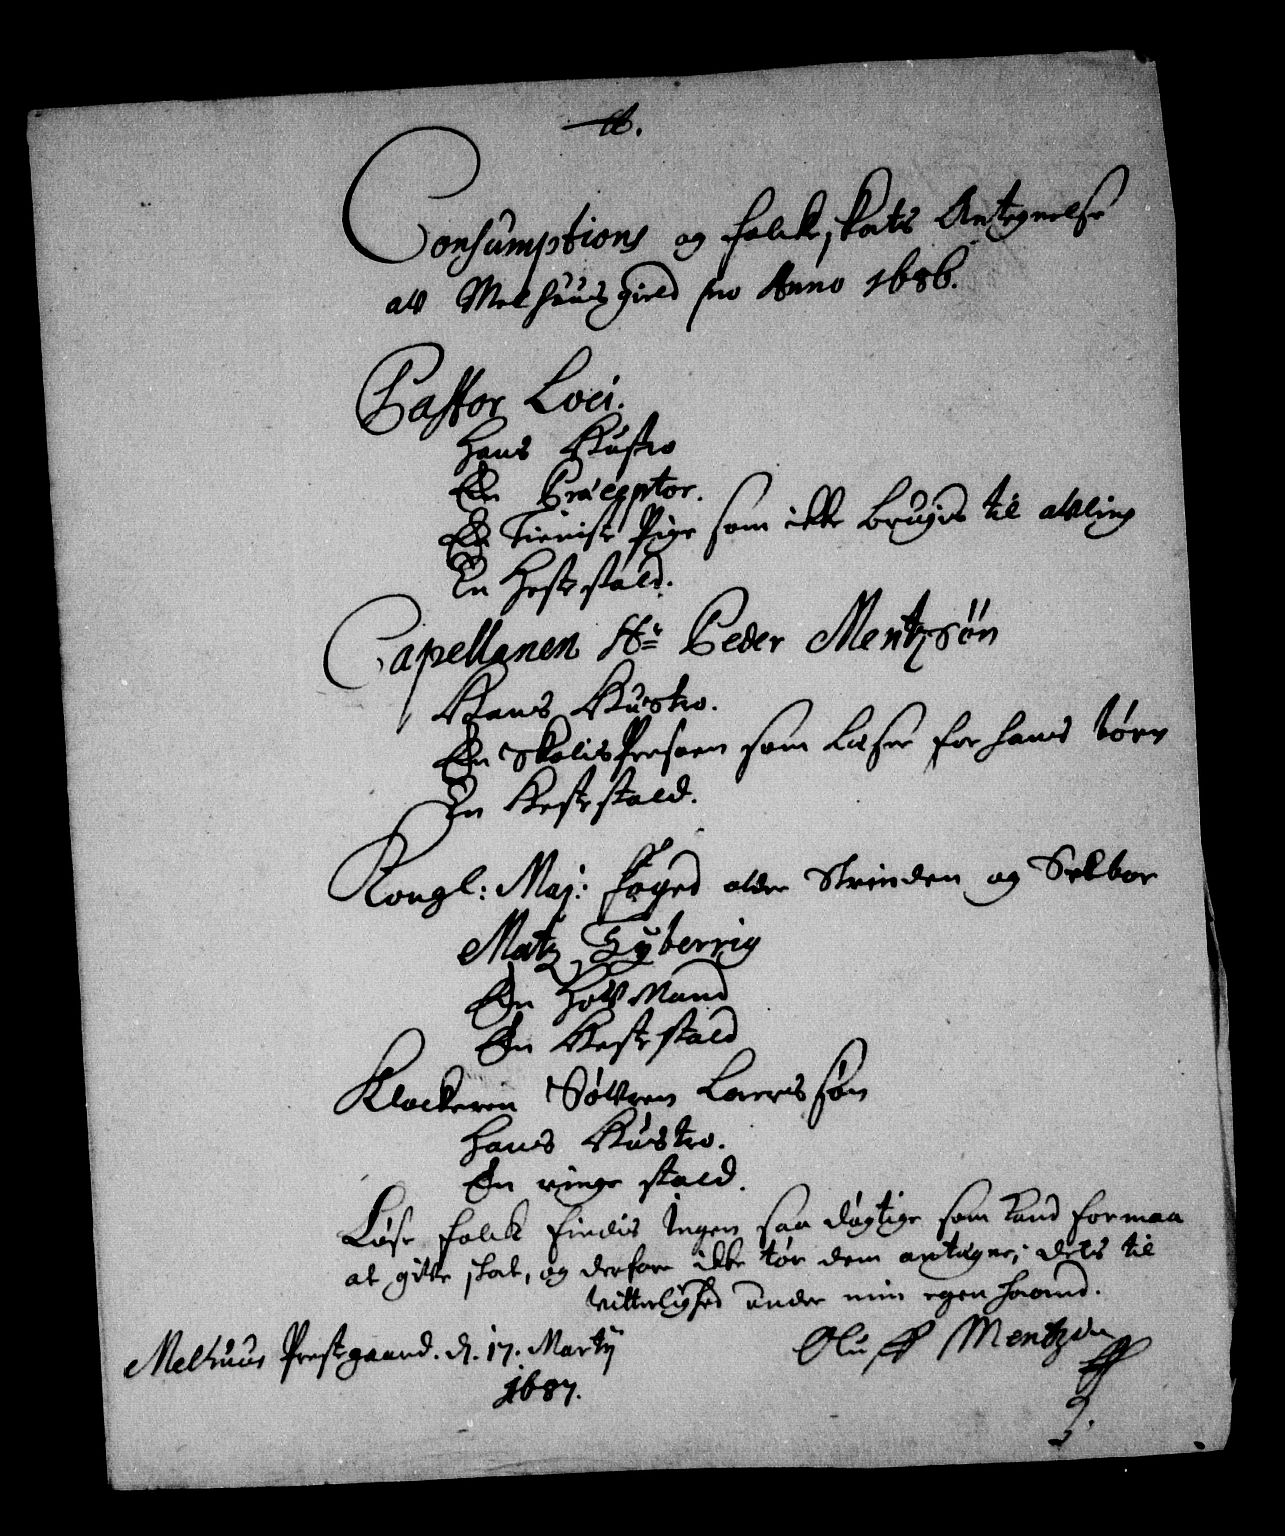 Consumptions og folcke skats Antegnelse
aff Melhuus gield pro Anno 1686.
Pastor Loci.
Hans Hustro
En Præceptor.
En Tieniste Pige som icke brugis til afling
En Hestestald.
Capellanen Hr Peder Mentzsøn
Hans Hustro.
En Skolis Persoen som læser for hans børn
En Hestestald.
Kongl: Maj: foged ofver Strinden og Selboe
Matz Syberrig
En Hofmand
En Hestestald
Klockeren Søfren Lauridssøn
Hans Hustro.
En ringe stald.
Løse folck findis Ingen saa døgtige som kand formaa
at gifve skat, og derfore icke tør dem antegne; dets til
vitterlighed under min egen haand.
Melhuus Prestegaard. d. 17. Martij
1687.
Oluff Mentzen